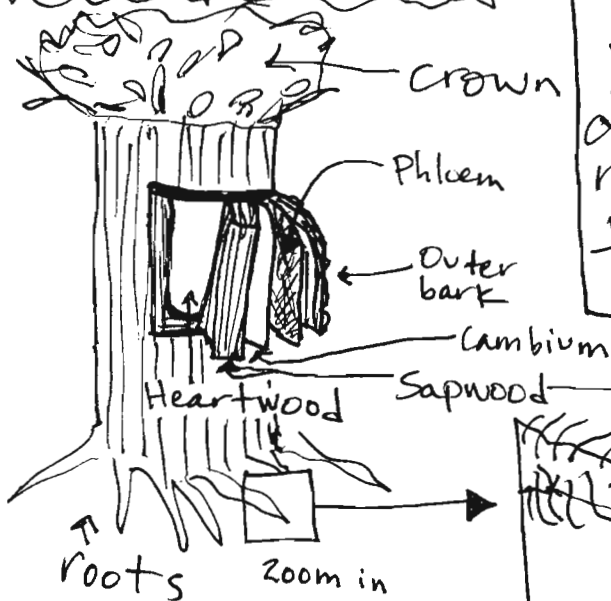 Crown
Phloem
Outer
bark
Cambium
Sapwood
Heartwood
roots
zoom in